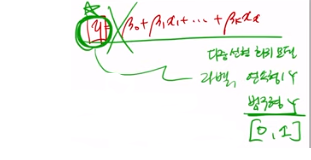 y = β₀+β₁x₁+ ... + βₖxₖ
다중선형회귀모델
라벨, 연속형 Y
범주형 Y
[0, 1]